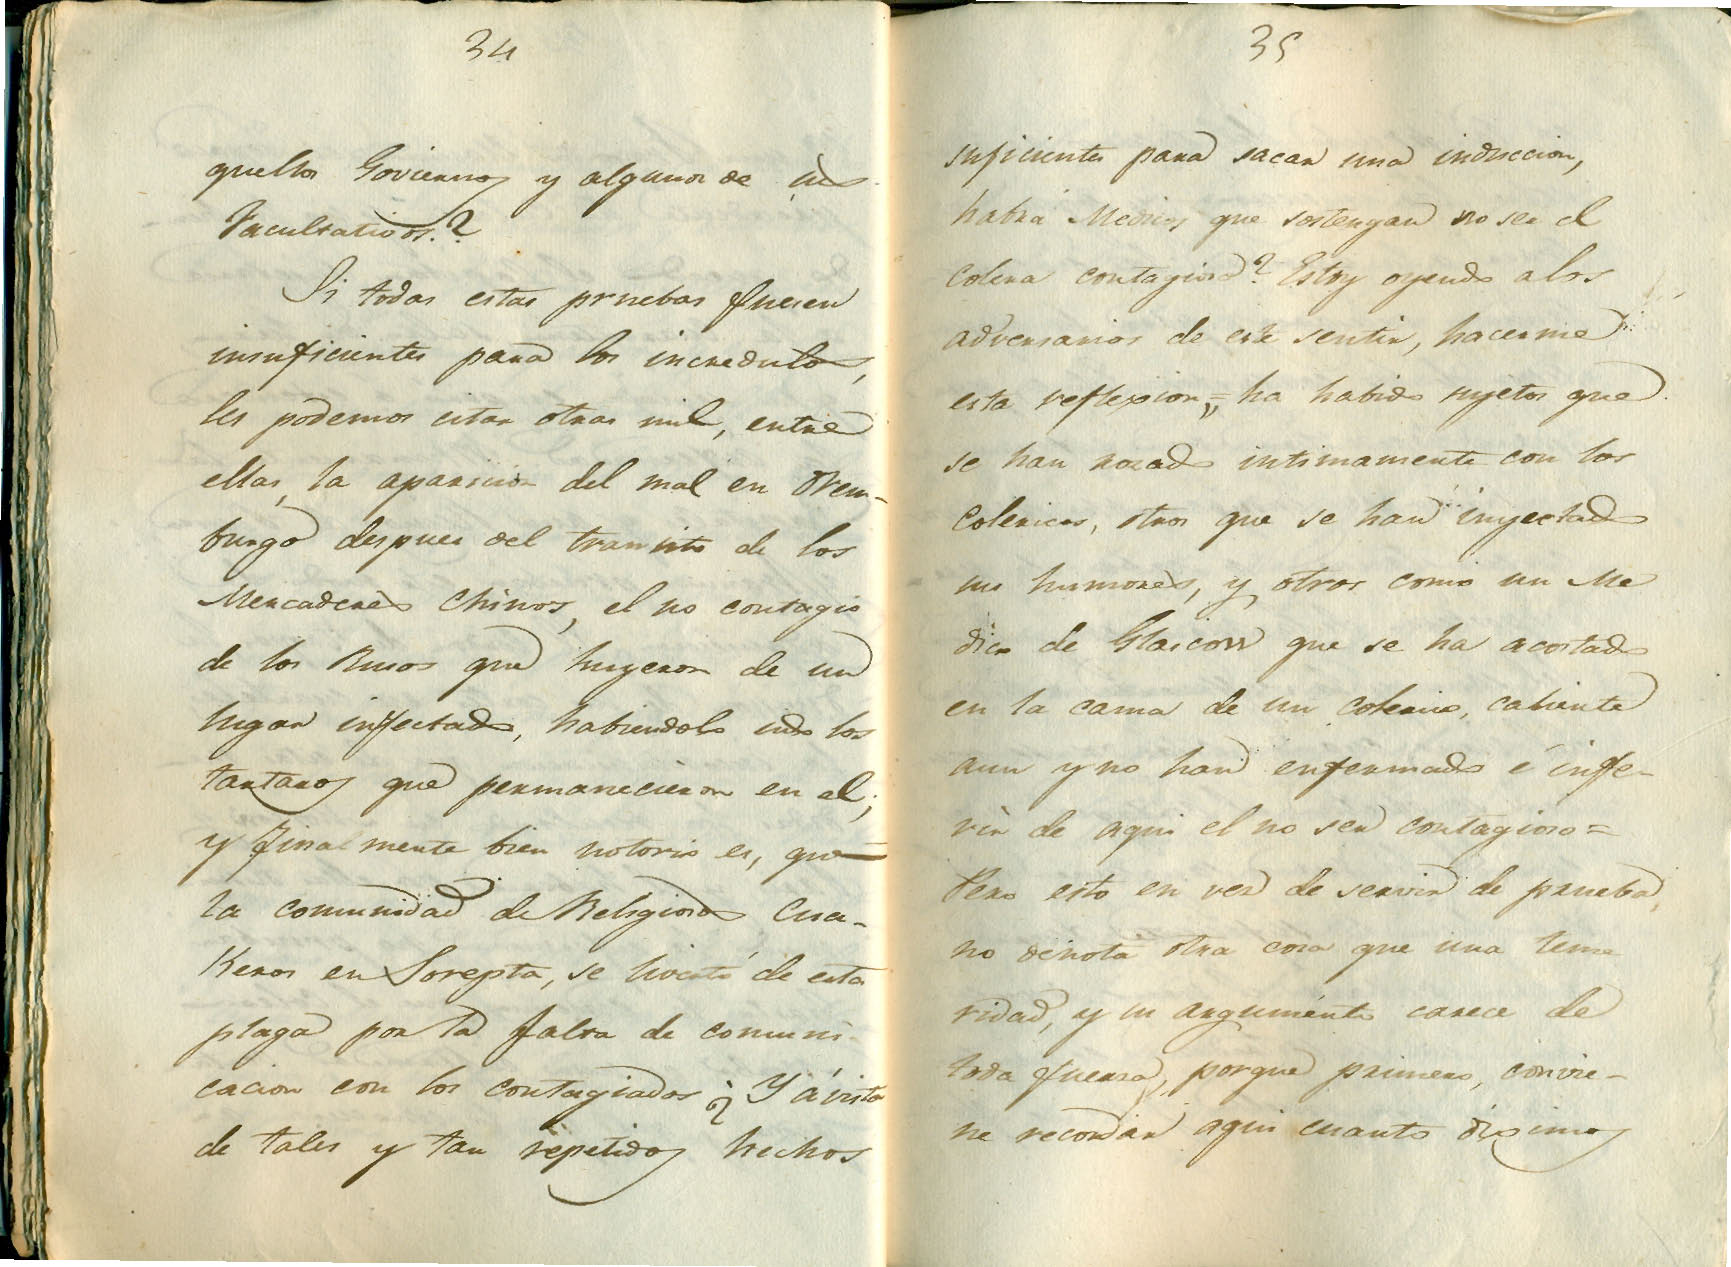 34
quellos Goviernos y algunos de sus
Facultativos.?
Si todas estas pruebas fuesen
insuficientes para los incredulos,
les podemos citar otras mil, entre
ellas, la aparicion del mal en Orem-
burgo despues del transito de los
Mercaderes Chinos, el no contagio
de los Rusos que huyeron de un
lugar infectado, habiendolo sido los
tartaros que permanecieron en el;
y finalmente bien notorio es, que
la comunidad de Religiosos Cua-
Keros en Sorepta, se livertó de esta
plaga por la falta de comuni-
cacion con los contagiados ¿Y á vista
de tales y tan repetidos hechos
35
suficientes para sacar una induccion,
habra Medicos que sostengan no ser el
Colera contagioso? Estoy oyendo a los
adversarios de este sentir, hacerme
esta reflexion = ha habido sujetos que
se han rozado intimamente con los
Colericos, otros que se han inyectado
sus humores, y otros como un Me
dico de Glascow que se ha acostado
en la cama de un Colerico, caliente
aun y no han enfermado é infe-
rir de aqui el no ser contagioso =
Pero esto en vez de servir de prueba,
no denota otra cosa que una teme
ridad, y su argumento carece de
toda fuerza, porque primero, convie-
ne recordar aqui cuanto diximos